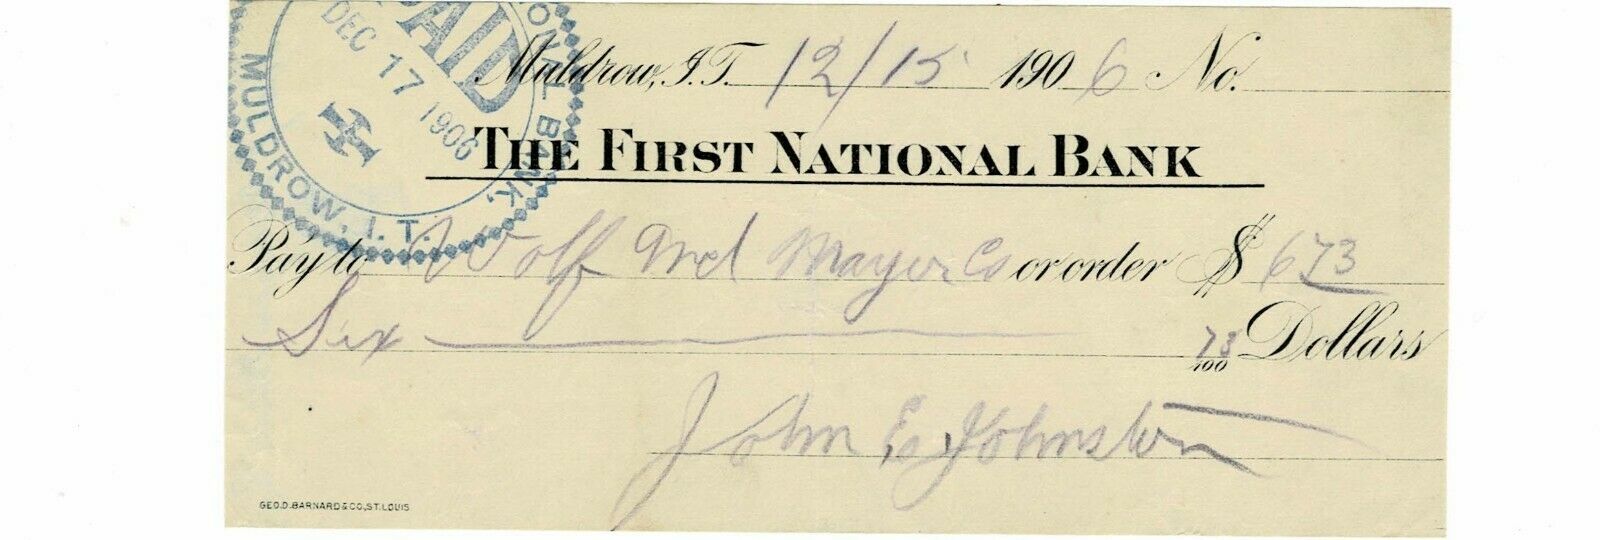 PAID
DEC 17 1906
ONAL BANK,
MULDROW, I. T.
Muldrow, I.T. 12/15 1906 No.
THE FIRST NATIONAL BANK
Pay to Wolf Mayer Co or order $ 6 73
Six 73/100 Dollars
John E. Johnston
GEO.D.BARNARD & CO., ST. LOUIS